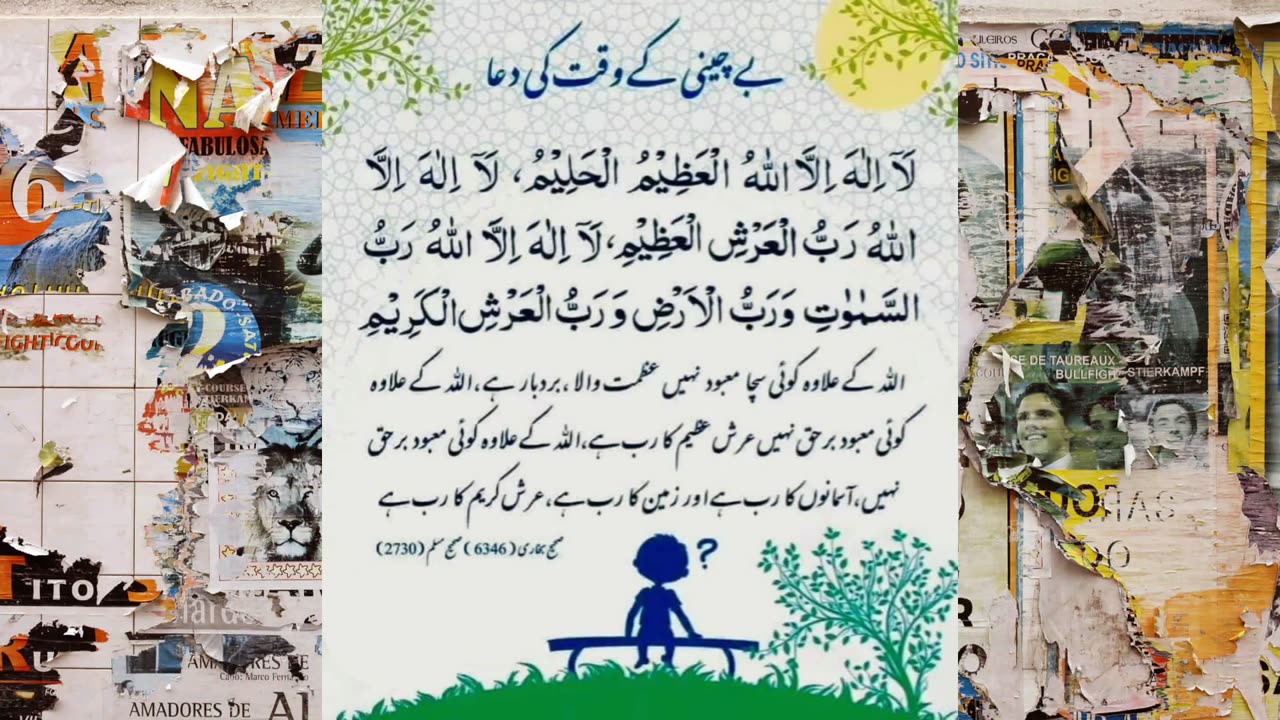 بے چینی کے وقت کی دعا
لَآ اِلٰهَ اِلَّا اللهُ الْعَظِيْمُ الْحَلِيْمُ، لَآ اِلٰهَ اِلَّا
اللهُ رَبُّ الْعَرْشِ الْعَظِيْمِ، لَآ اِلٰهَ اِلَّا اللهُ رَبُّ
السَّمٰوٰتِ وَرَبُّ الْاَرْضِ وَرَبُّ الْعَرْشِ الْكَرِيْمِ
اللہ کے علاوہ کوئی سچا معبود نہیں عظمت والا، بردبار ہے، اللہ کے علاوہ
کوئی معبود برحق نہیں عرش عظیم کا رب ہے، اللہ کے علاوہ کوئی معبود برحق
نہیں، آسمانوں کا رب ہے اور زمین کا رب ہے، عرش کریم کا رب ہے
صحیح بخاری (6346) صحیح مسلم (2730)
?
NA
FABULOSA
6
SADO
COURSE
STIERKAM
TITO
AMADORES DE
Cabo: Marco Ferna
AMADORES DE
DE TAUREAUX
BULLFIG
STIERKAMPF